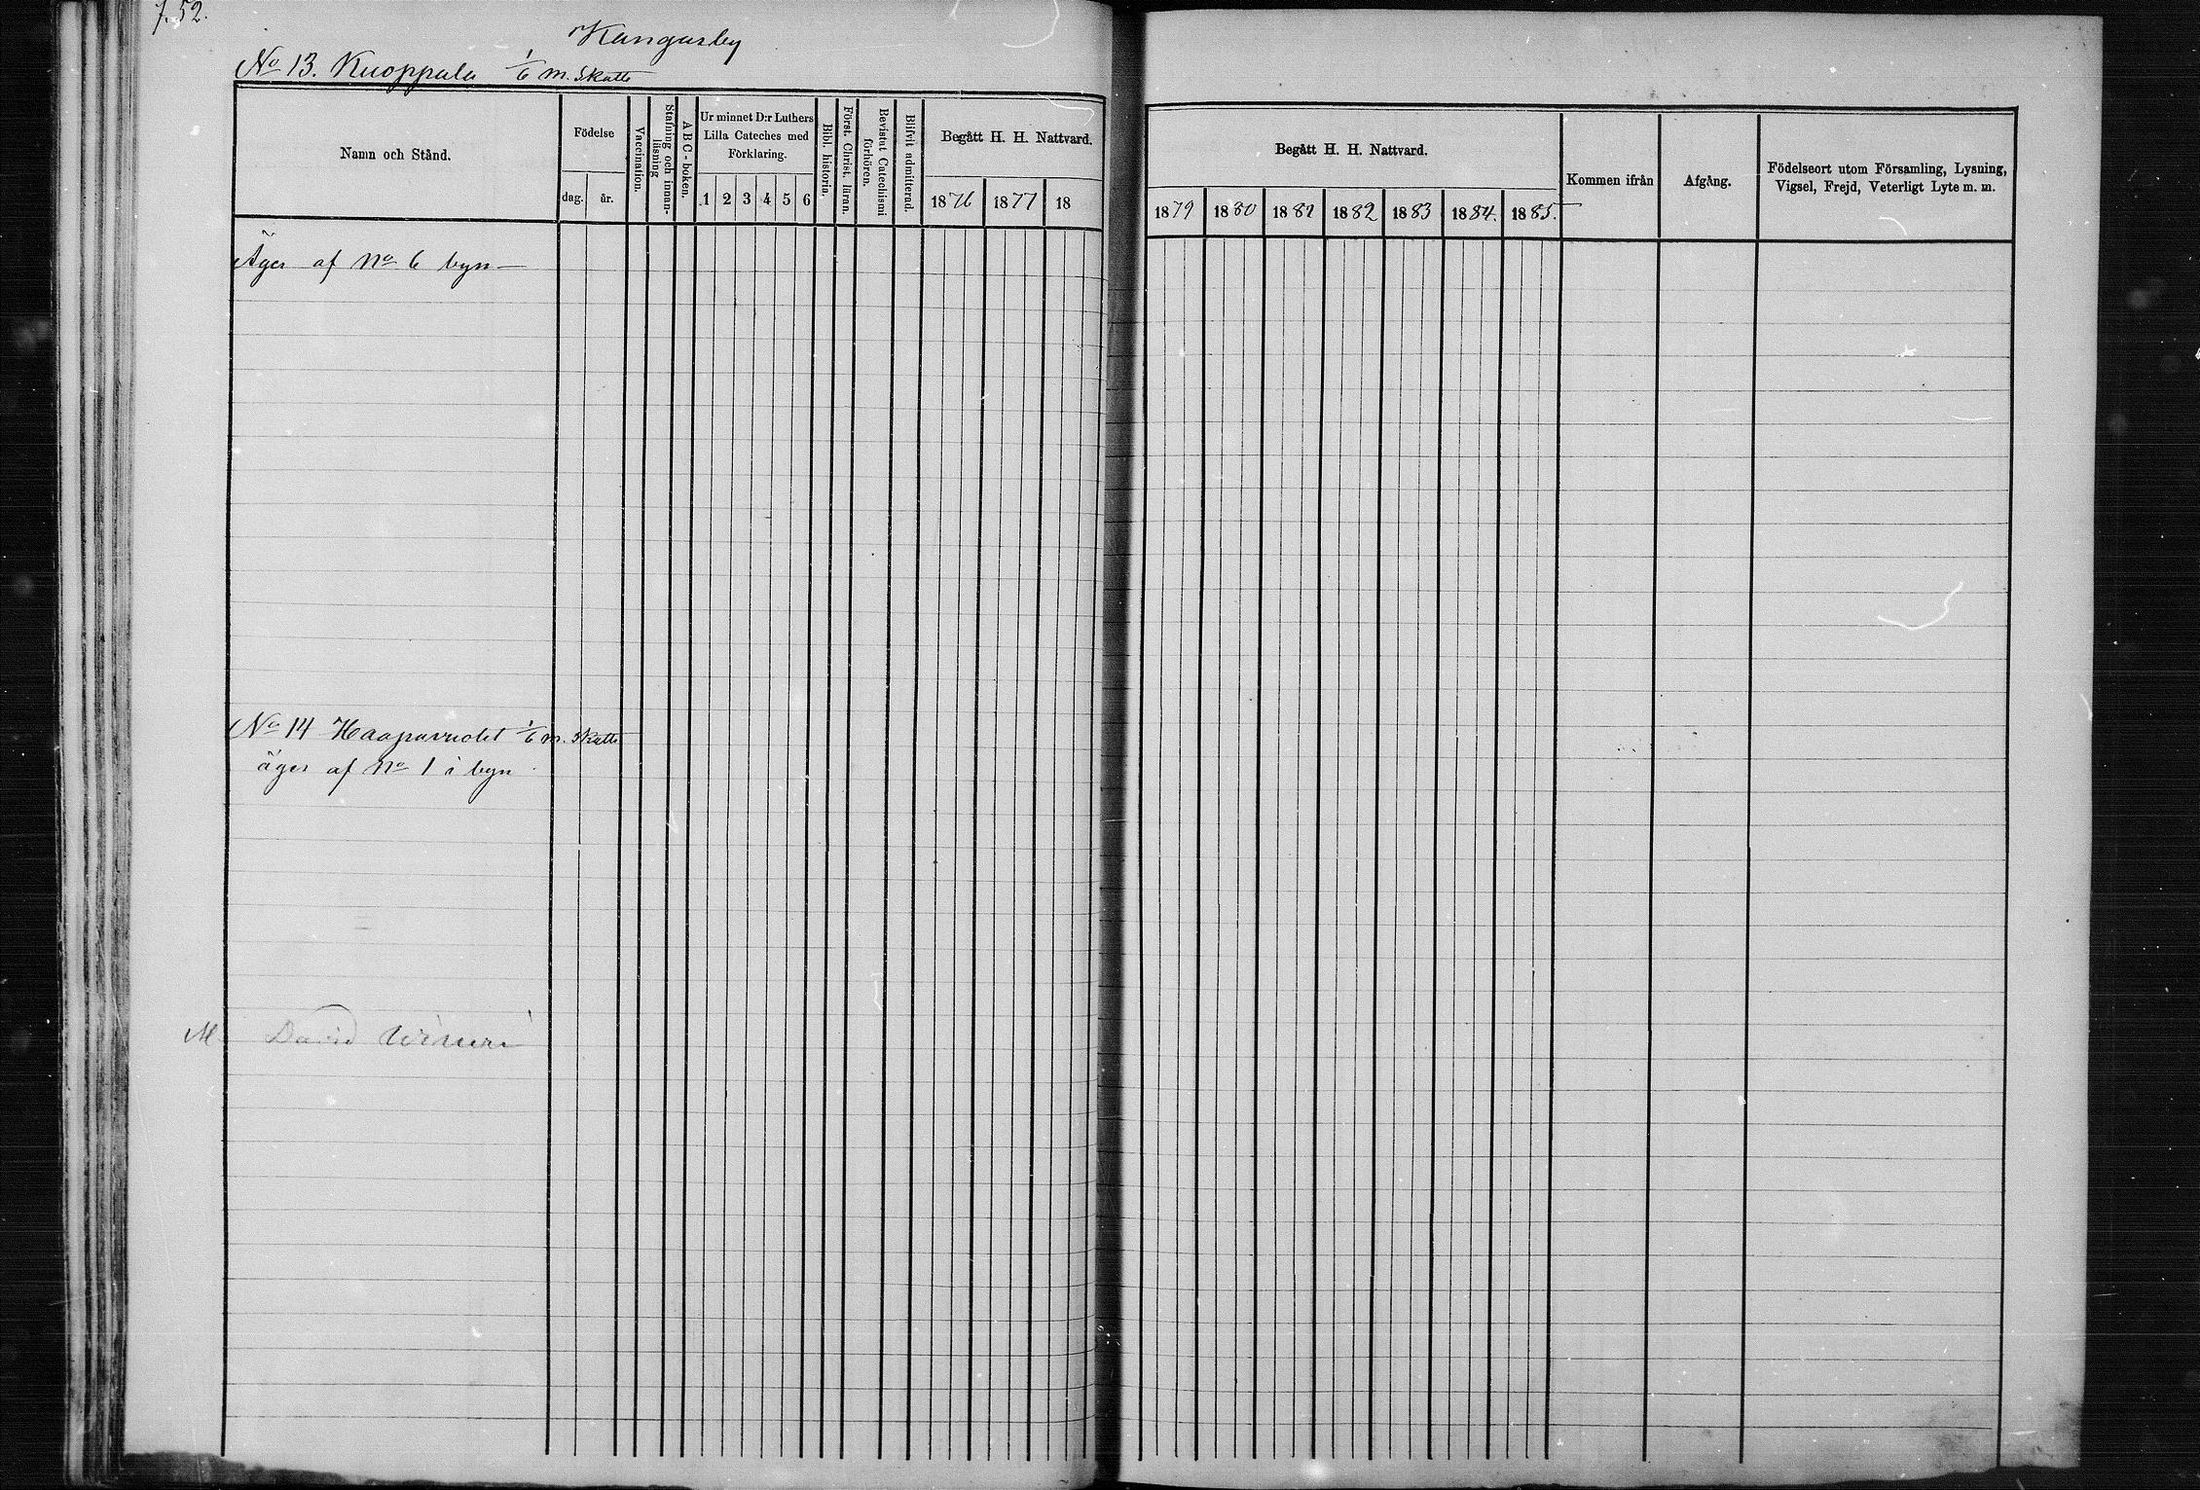 7. 52.
Kangasby
No 13. Kuoppala 1/6 m. Skatte
Namn och Stånd.
Födelse
dag. år.
Vaccination.
Stafning och innanläsning
ABC-boken.
Ur minnet D:r Luthers
Lilla Cateches med
Förklaring.
1 2 3 4 5 6
Bibl. historia.
Först. Christ. läran.
Bevistat Catechismi
förhören.
Blifvit admitterad.
Begått H. H. Nattvard.
1876 1877 18
Begått H. H. Nattvard.
1879 1880 1881 1882 1883 1884. 1885.
Kommen ifrån
Afgång.
Födelseort utom Församling, Lysning,
Vigsel, Frejd, Veterligt Lyte m. m.
Äges af No 6 byn
No 14 1/6 m. Skatte
äges af No 1 i byn
M. David